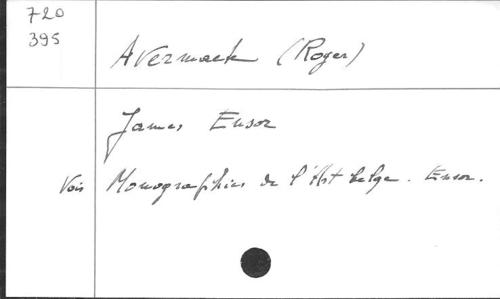 720
395
Avermaete (Roger)
James Ensor
Voir Monographies de l'Art belge. Ensor.